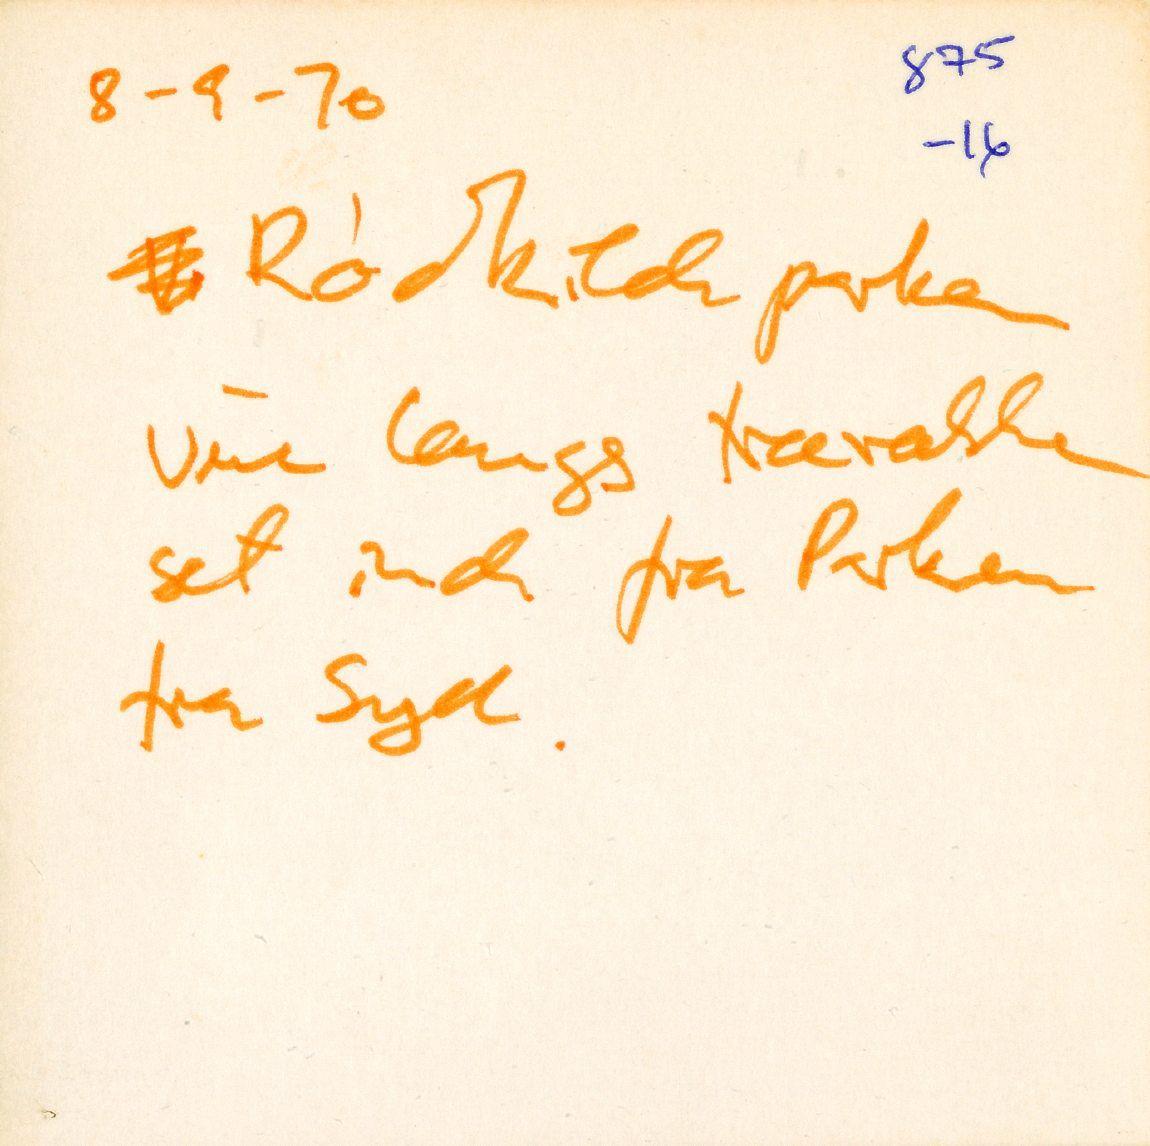 8-9-70
875
-16
Rødkilde parken
vue langs trærække
set inde fra Parken
fra Syd.